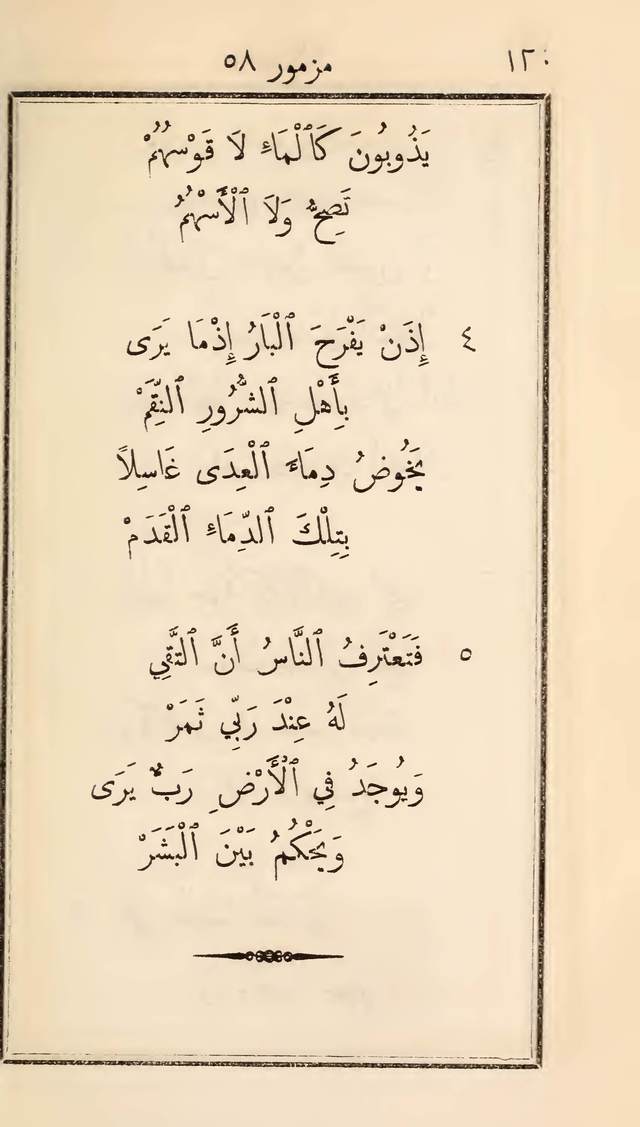 ١٢٠ مزمور ٥٨
يَذُوبُونَ كَٱلْمَاءِ لاَ قَوْسُهُمْ
تَصِحُّ وَلاَ ٱلْأَسْهُمُ
٤ إِذَنْ يَفْرَحَ ٱلْبَارُ إِذْمَا يَرَى
بِأَهْلِ ٱلشُّرُورِ ٱلنِّقَمْ
يَخُوضُ دِمَاءَ ٱلْعِدَى غَاسِلاً
بِتِلْكَ ٱلدِّمَاءِ ٱلْقَدَمْ
٥ فَتَعْتَرِفُ ٱلنَّاسُ أَنَّ ٱلتَّقِي
لَهُ عِنْدَ رَبِّي ثَمَرْ
وَيُوجَدُ فِي ٱلْأَرْضِ رَبٌّ يَرَى
وَيَحْكُمُ بَيْنَ ٱلْبَشَرْ